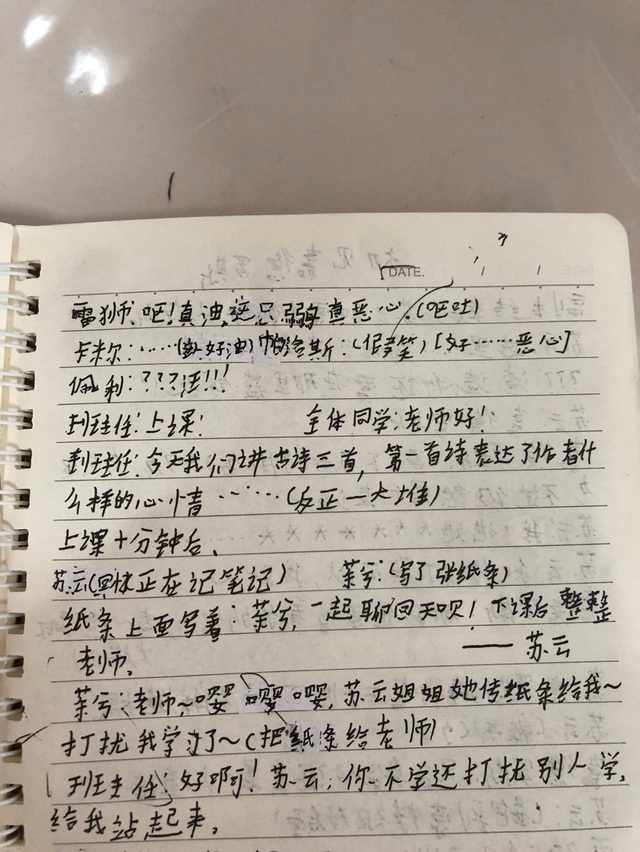 DATE.
雷狮：呕！真油，这只弱真恶心。(呕吐)
卡米尔：……(好油) 帕洛斯：(假笑) [好……恶心]
佩利：？？？汪！！！
班主任：上课！ 全体同学：老师好！
班主任：今天我们讲古诗三首，第一首诗表达了作者什
么样的心情……(反正一大堆)
上课十分钟后，
苏云(正在记笔记) 茉兮：(写了张纸条)
纸条上面写着：茉兮，一起聊回天呗！下课后整整
老师。 —— 苏云
茉兮：老师~嘤嘤嘤，苏云姐姐她传纸条给我~
打扰我学习了~(把纸条给老师)
班主任：好啊！苏云，你不学还打扰别人学，
给我站起来。